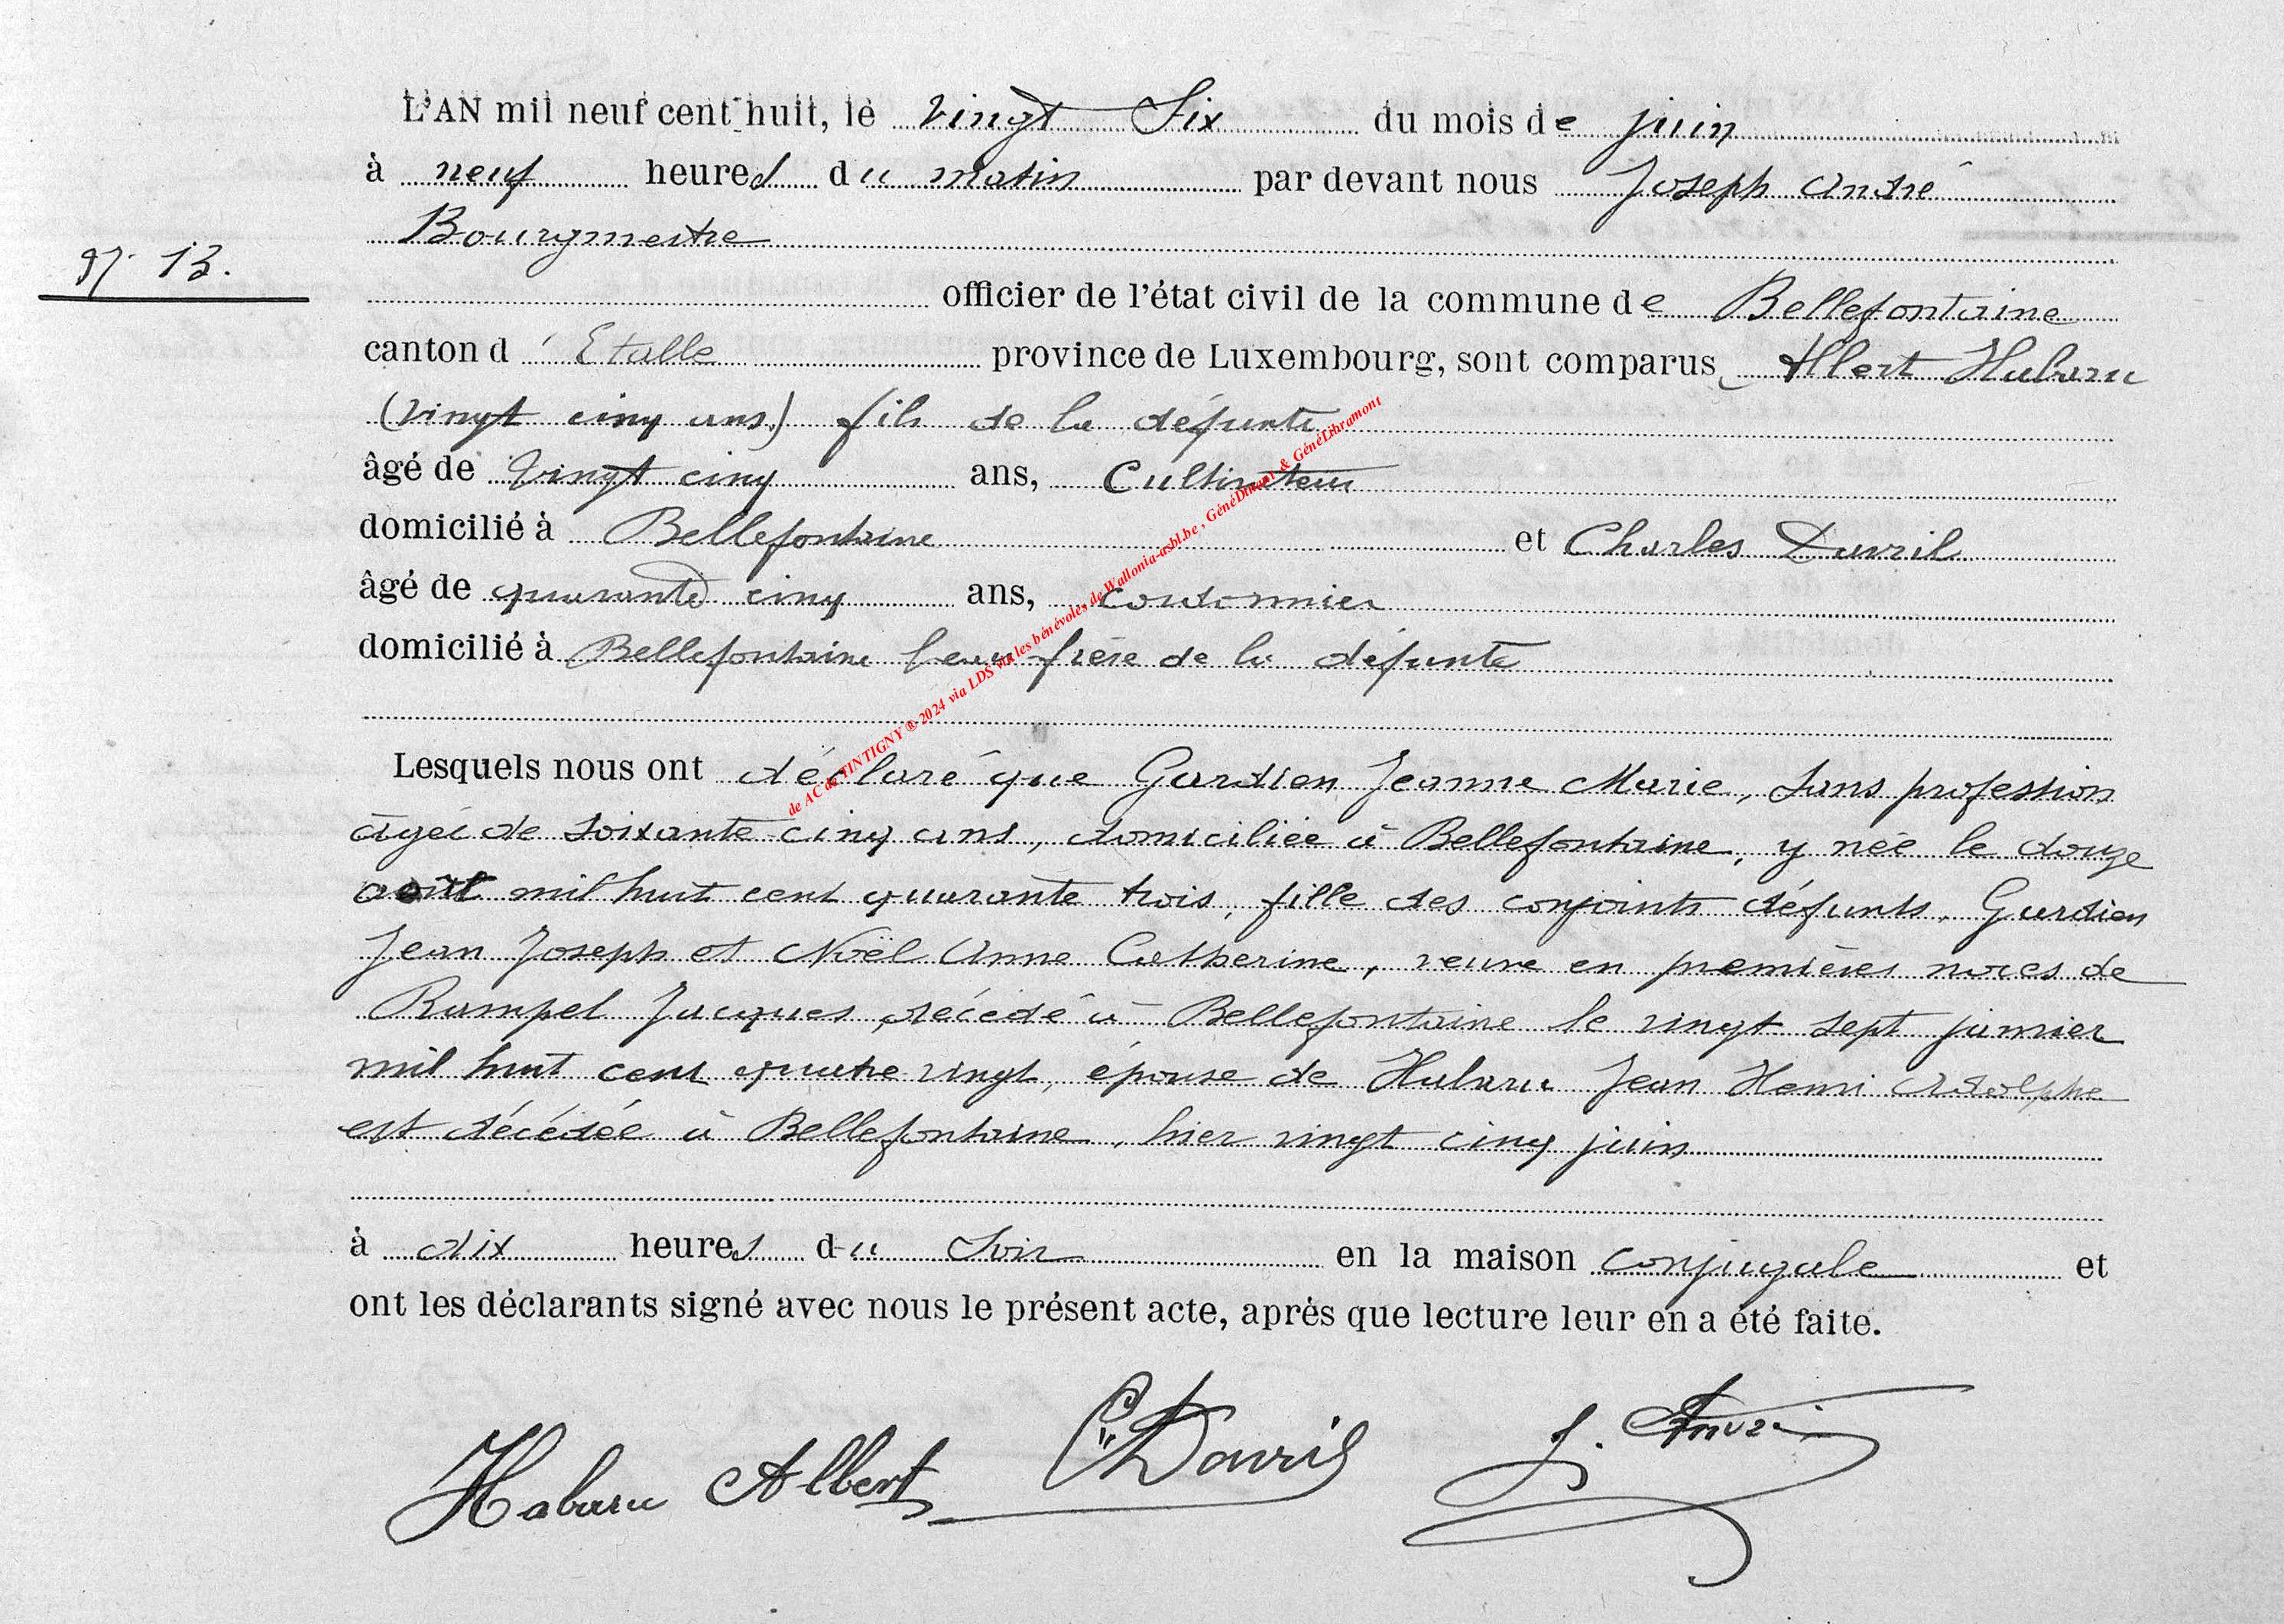 L'AN mil neuf cent huit, le vingt Six du mois de juin
à neuf heures du matin par devant nous Joseph André
Bourgmestre
N° 13.
officier de l'état civil de la commune de Bellefontaine
canton d'Etalle province de Luxembourg, sont comparus Albert Habaru
(vingt cinq ans) fils de la défunte
âgé de vingt cinq ans, Cultivateur
domicilié à Bellefontaine et Charles Davril
âgé de quarante cinq ans, cordonnier
domicilié à Bellefontaine beau frère de la défunte
Lesquels nous ont déclaré que Gardien Jeanne Marie, sans profession
âgée de soixante cinq ans, domiciliée à Bellefontaine, y née le douze
août mil huit cent quarante trois, fille des conjoints défunts, Gardien
Jean Joseph et Noël Anne Catherine, veuve en premières noces de
Rampel Jacques, décédé à Bellefontaine le vingt sept janvier
mil huit cent quatre vingt, épouse de Habaru Jean Henri Adolphe
est décédée à Bellefontaine, hier vingt cinq juin
à dix heures du soir en la maison conjugale et
ont les déclarants signé avec nous le présent acte, après que lecture leur en a été faite.
Habaru Albert Ch Davril J. André
de AC de TINTIGNY ® 2024 via LDS via les bénévoles de Wallonia-asbl.be, GénéDinant & GénéLibramont